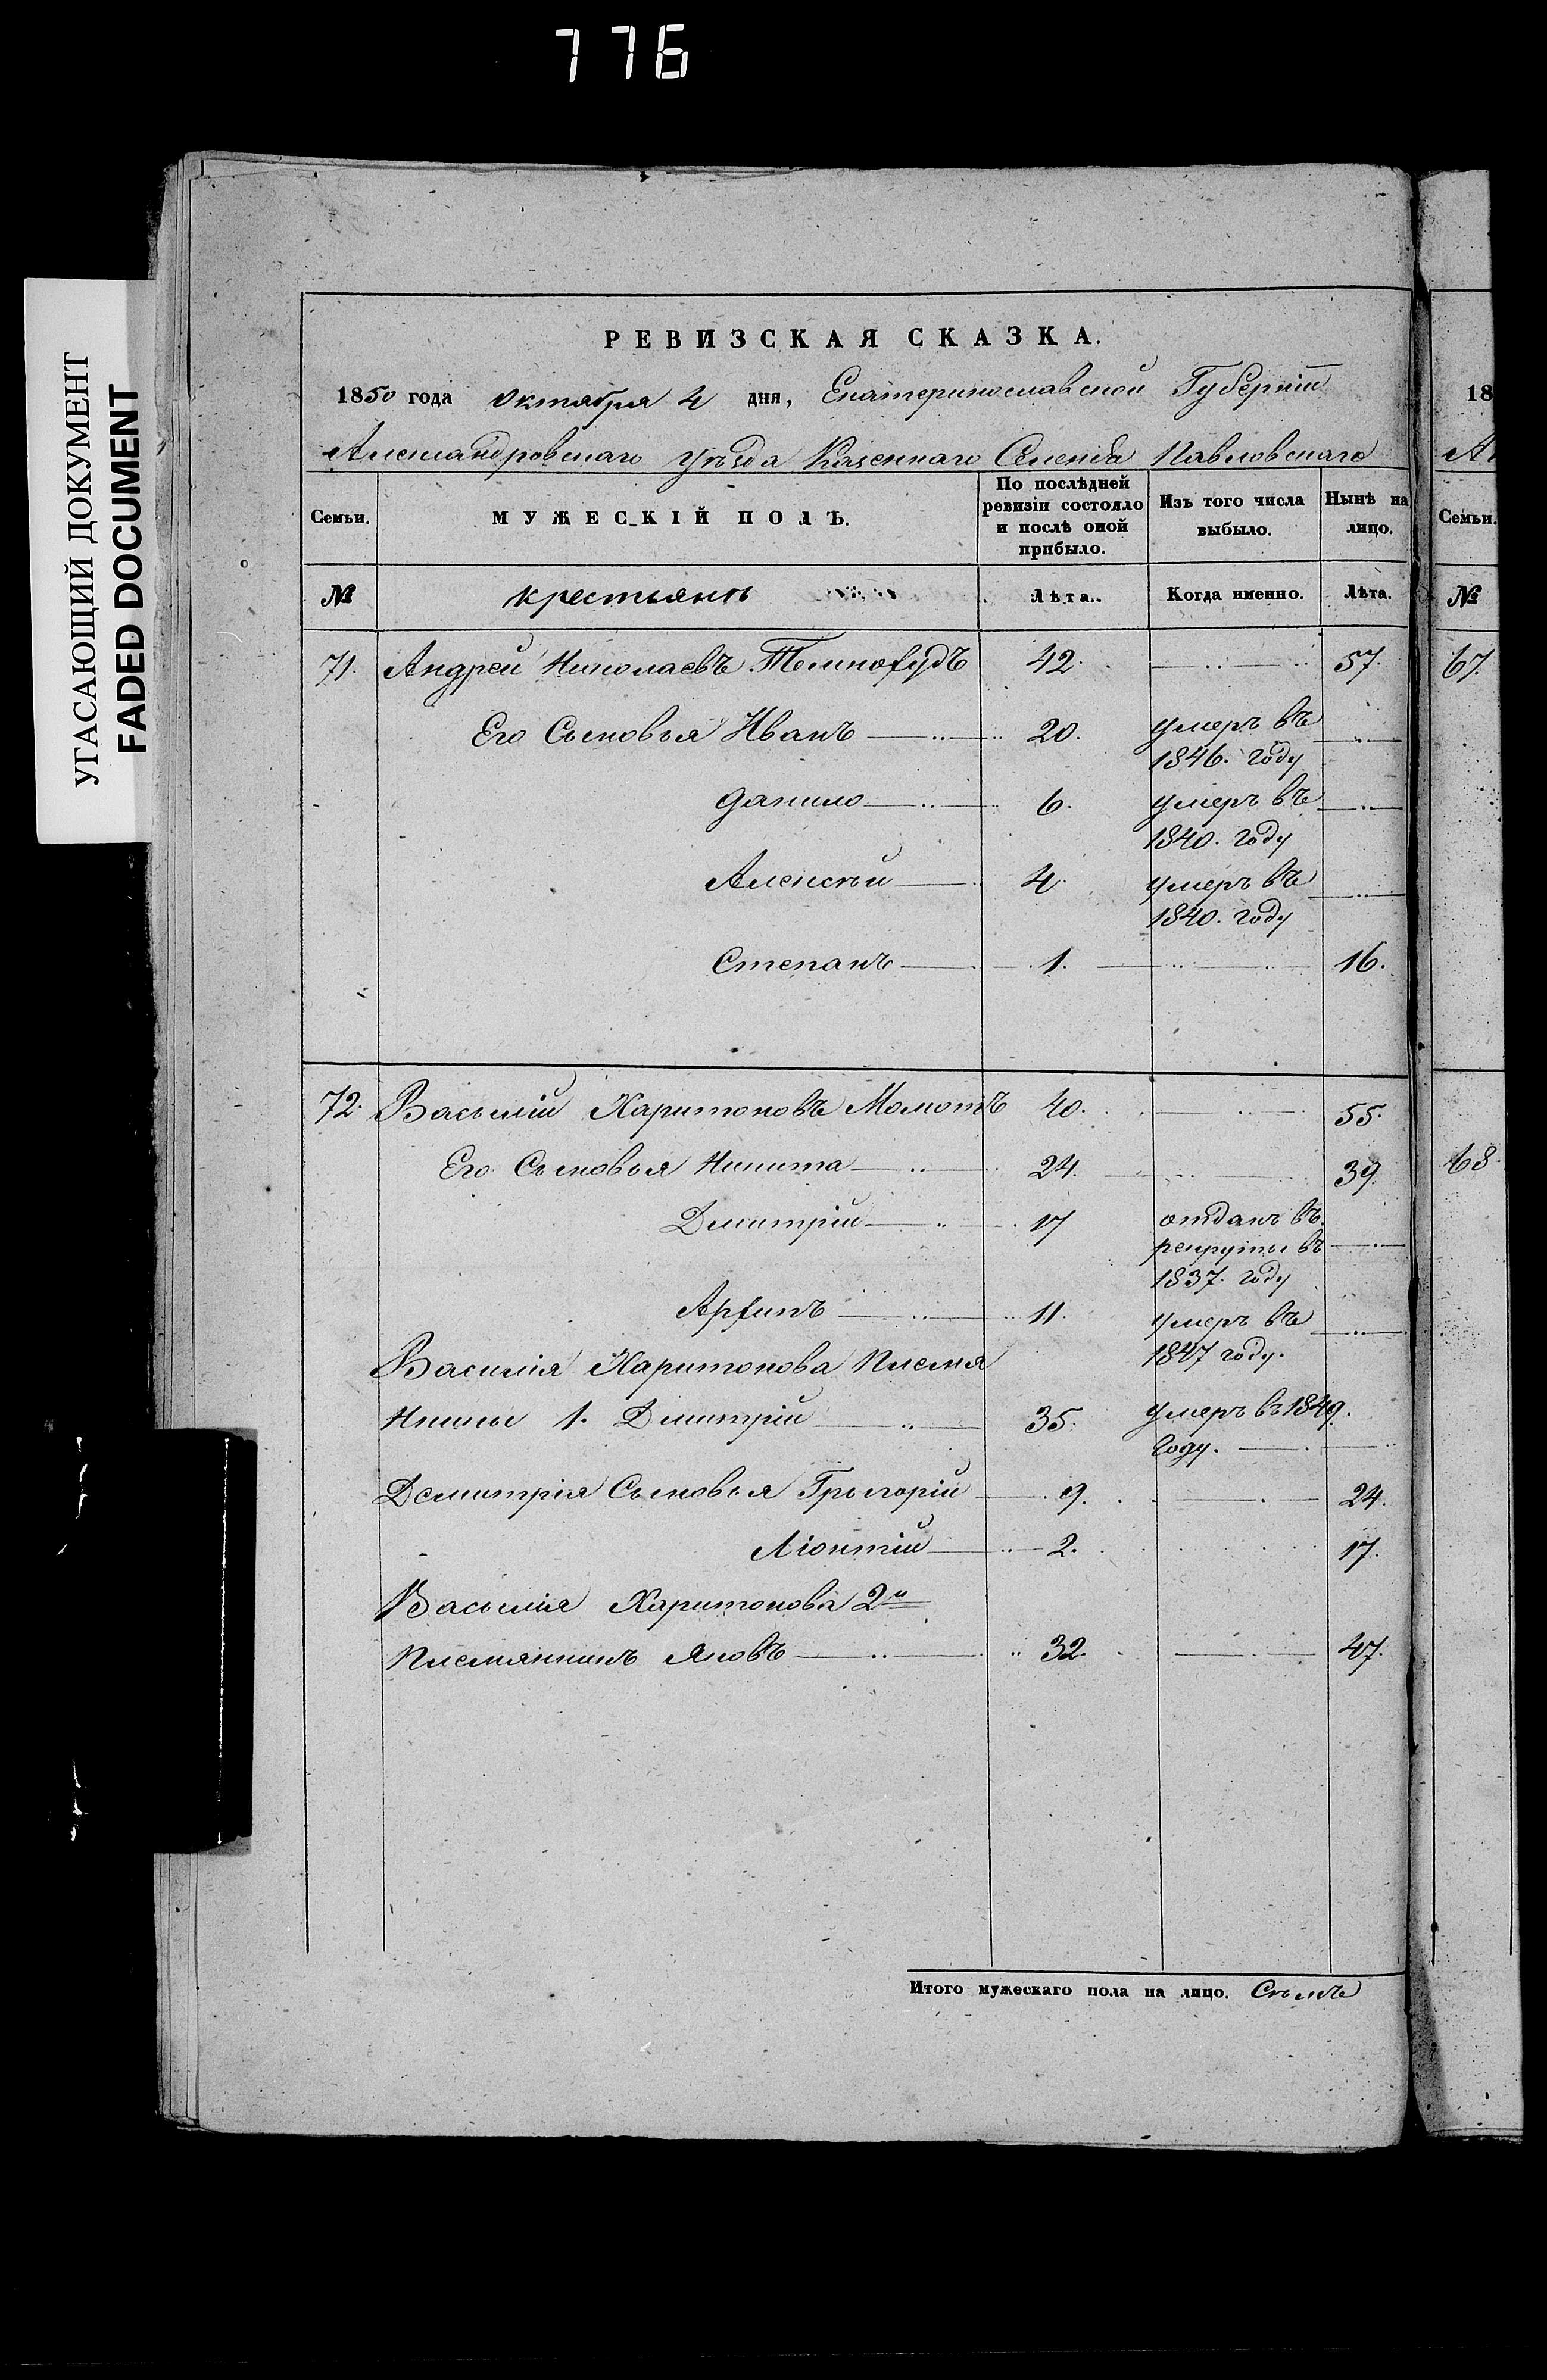 776
УГАСАЮЩИЙ ДОКУМЕНТ
FADED DOCUMENT
РЕВИЗСКАЯ СКАЗКА.
1850 года Октября 4 дня, Екатеринославской Губерніи
Александровскаго Уѣзда Казеннаго Селенія Павловскаго
Семьи. МУЖЕСКІЙ ПОЛЪ. По послѣдней ревизіи состояло и послѣ оной прибыло. Изъ того числа выбыло. Нынѣ на лицо.
№ крестьянъ Лѣта. Когда именно. Лѣта.
71. Андрей Николаевъ 42. 57.
Его Сыновья Иванъ 20. умеръ въ 1846. году
Данило 6. умеръ въ 1840. году
Алексѣй 4. умеръ въ 1840. году
Степанъ 1. 16.
72. Васылій Харитоновъ Момотъ 40. 55.
Его Сыновья Никита 24. 39.
Дмитрій 17 отданъ въ рекруты въ 1837. году
11. умеръ въ 1847 году.
Василія Харитонова Племя
ники 1. Дмитрій 35. умеръ въ 1849. году.
Демитрія Сыновья Грыгорій 9. 24.
Ліонтій 2. 17.
Васылія Харитонова 2й
Племянникъ Яковъ 32. 47.
Итого мужескаго пола на лицо. Сѣмъ
18
Семьи.
№
67.
68.